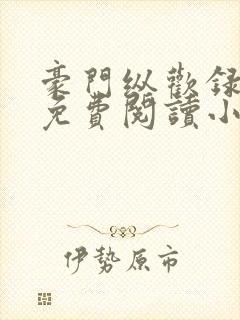 豪門纵歡録
免費閱讀小
伊勢原市